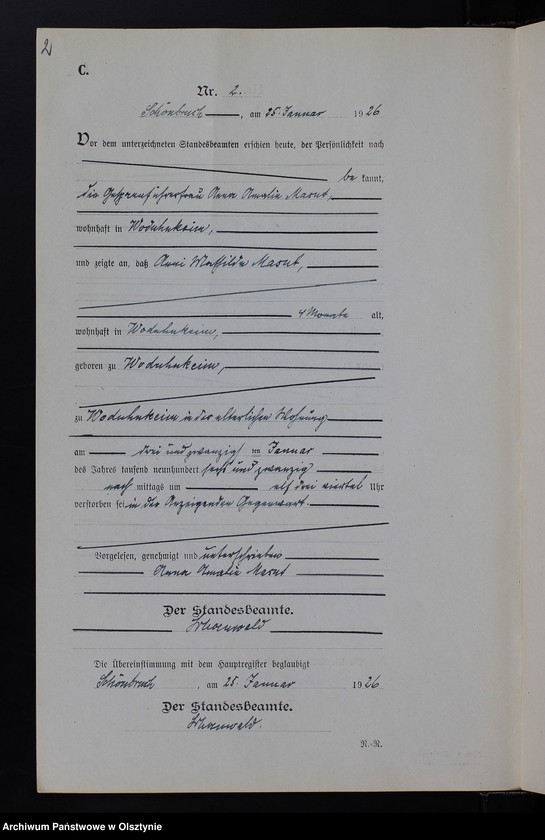 2
C.
Nr. 2.
Schönbruch, am 25. Januar 1926
Vor dem unterzeichneten Standesbeamten erschien heute, der Persönlichkeit nach
be kannt,
die Gespannführerfrau Anna Amalie
wohnhaft in Woduhnkeim,
und zeigte an, daß Anni Mathilde
4 Monate alt,
wohnhaft in Woduhnkeim,
geboren zu Woduhnkeim,
zu Woduhnkeim in der elterlichen Wohnung
am drei und zwanzigsten Januar
des Jahres tausend neunhundert sechs und zwanzig
nach mittags um elf drei viertel Uhr
verstorben sei in der Anzeigenden Gegenwart.
Vorgelesen, genehmigt und unterschrieben
Anna Amalie
Der Standesbeamte.
Die Übereinstimmung mit dem Hauptregister beglaubigt
Schönbruch, am 25. Januar 1926
Der Standesbeamte.
R.-R.
Archiwum Państwowe w Olsztynie